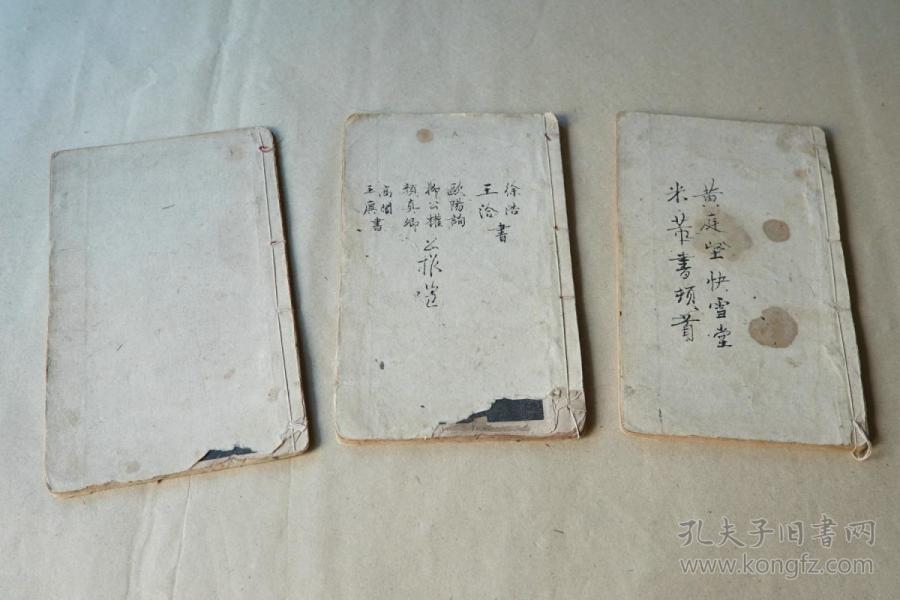 徐浩
王洽書
歐陽詢
柳公權
顏真卿
高閑
王廙書
黄庭坚快雪堂
米芾書頓首
孔夫子旧书网
www.kongfz.com